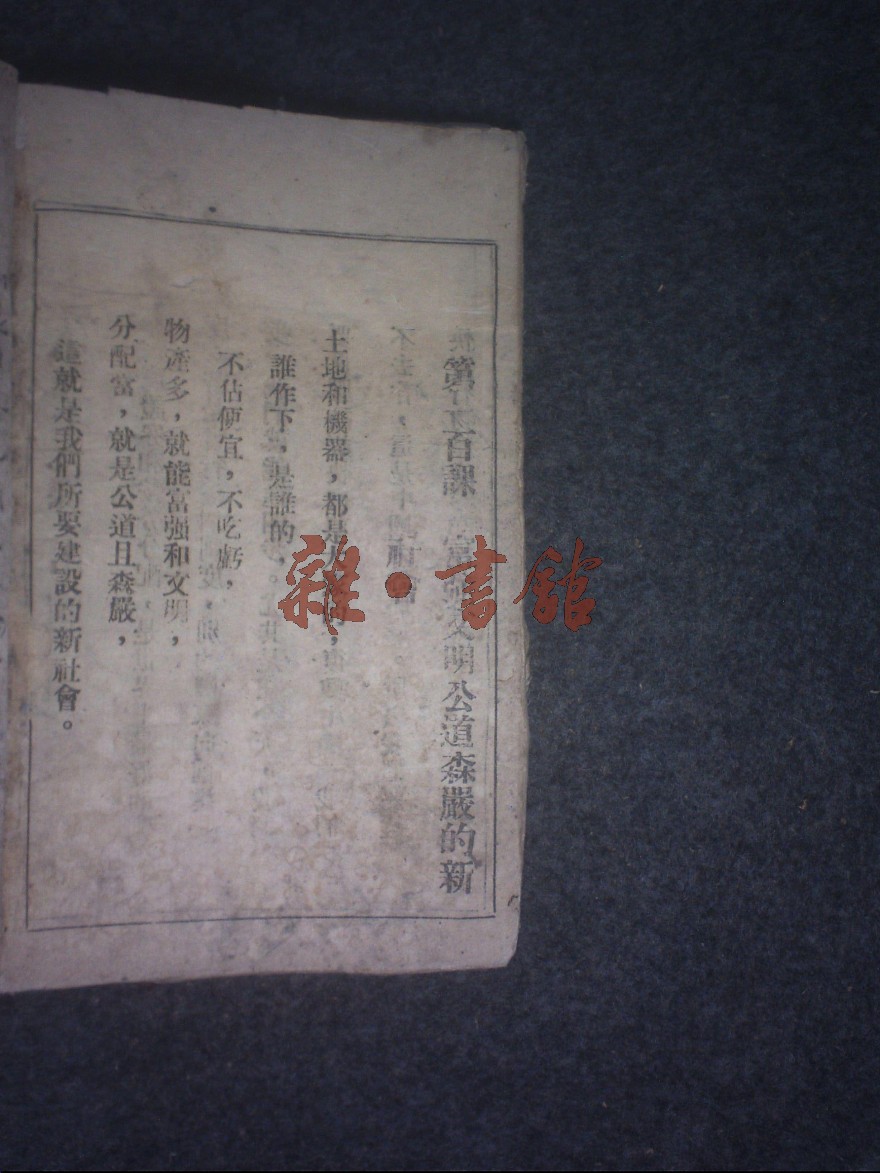 第一百課 富强文明公道森嚴的新
社會
土地和機器,都是
誰作下,是誰的,
不佔便宜,不吃虧,
物產多,就能富强和文明,
分配富,就是公道且森嚴,
這就是我們所要建設的新社會。
雜·書舘